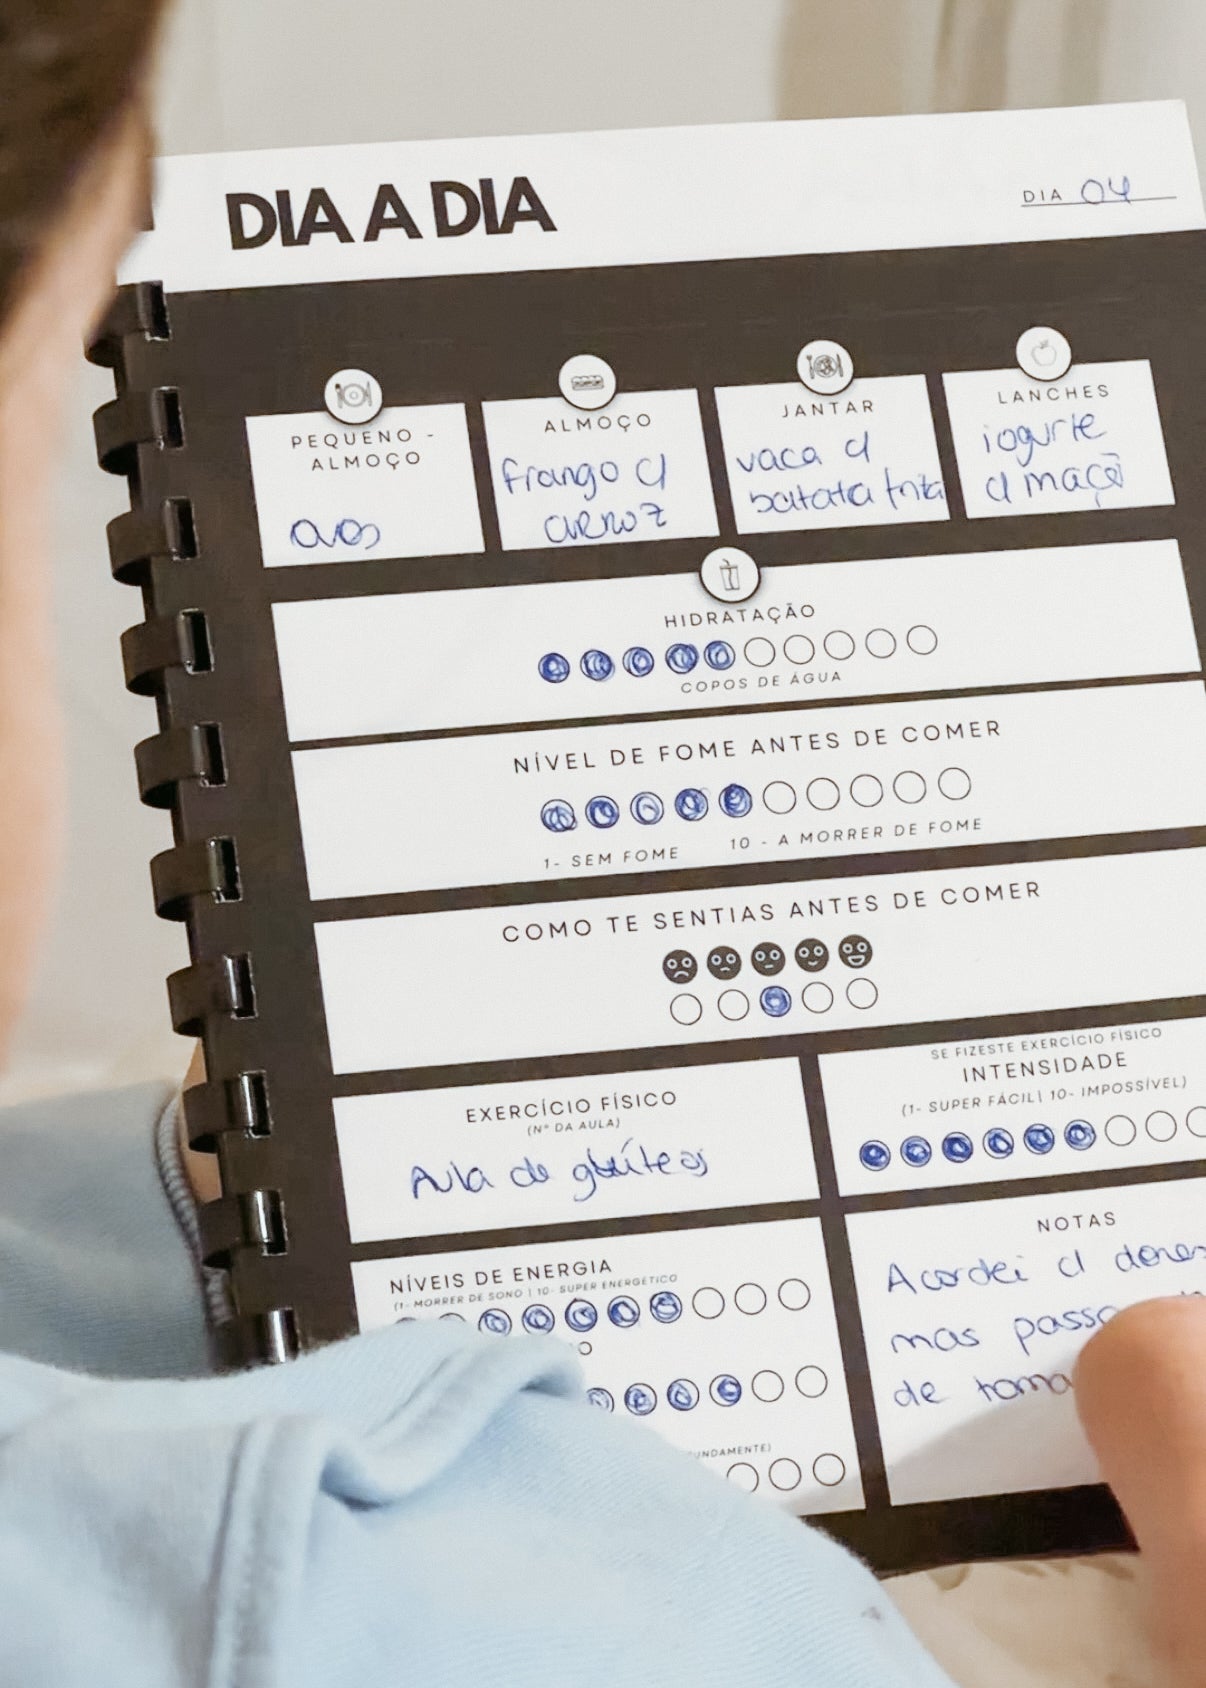 DIA A DIA
DIA 04
PEQUENO -
ALMOÇO
ovos
ALMOÇO
frango c/
arroz
JANTAR
vaca c/
batata frita
LANCHES
iogurte
c/ maçã
HIDRATAÇÃO
COPOS DE ÁGUA
NÍVEL DE FOME ANTES DE COMER
1- SEM FOME 10 - A MORRER DE FOME
COMO TE SENTIAS ANTES DE COMER
EXERCÍCIO FÍSICO
(Nº DA AULA)
Aula de glúteos
SE FIZESTE EXERCÍCIO FÍSICO
INTENSIDADE
(1- SUPER FÁCIL| 10- IMPOSSÍVEL)
NÍVEIS DE ENERGIA
(1- MORRER DE SONO | 10- SUPER ENERGÉTICO
UNDAMENTE)
NOTAS
Acordei c/ dores
mas passo
de toma